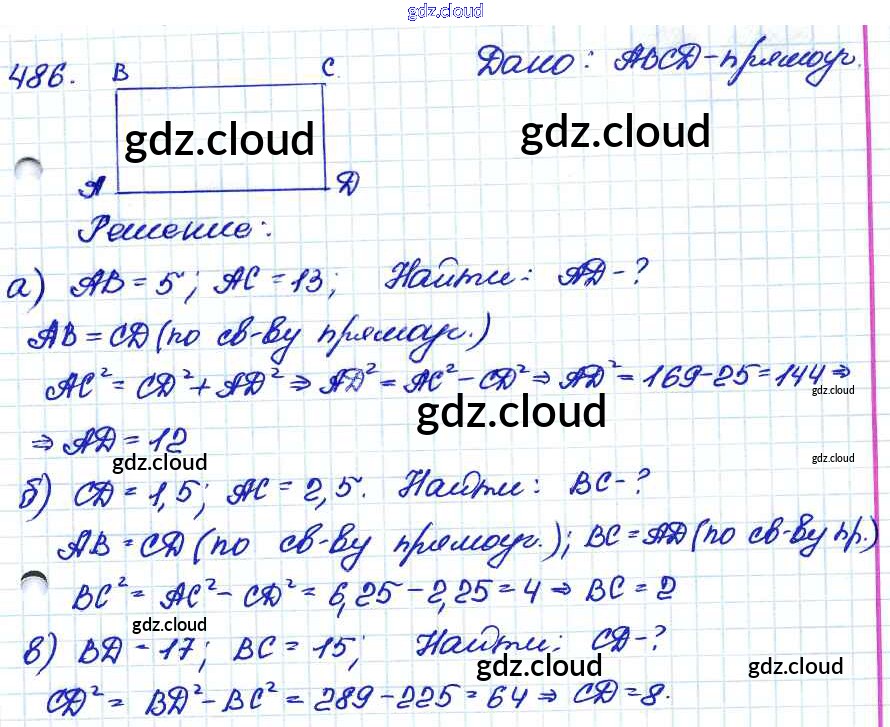 gdz.cloud
486. B C Дано: ABCD-прямоуг.
gdz.cloud gdz.cloud
A D
Решение:
а) AB = 5; AC = 13; Найти: AD-?
AB = CD (по св-ву прямоуг.)
AC² = CD² + AD² ⇒ AD² = AC² - CD² ⇒ AD² = 169-25 = 144 ⇒
gdz.cloud gdz.cloud
⇒ AD = 12
gdz.cloud gdz.cloud
б) CD = 1,5; AC = 2,5. Найти: BC-?
AB = CD (по св-ву прямоуг.); BC = AD (по св-ву пр.)
BC² = AC² - CD² = 6,25 - 2,25 = 4 ⇒ BC = 2
gdz.cloud
в) BD - 17; BC = 15; Найти: CD-?
gdz.cloud gdz.cloud
CD² = BD² - BC² = 289 - 225 = 64 ⇒ CD = 8.